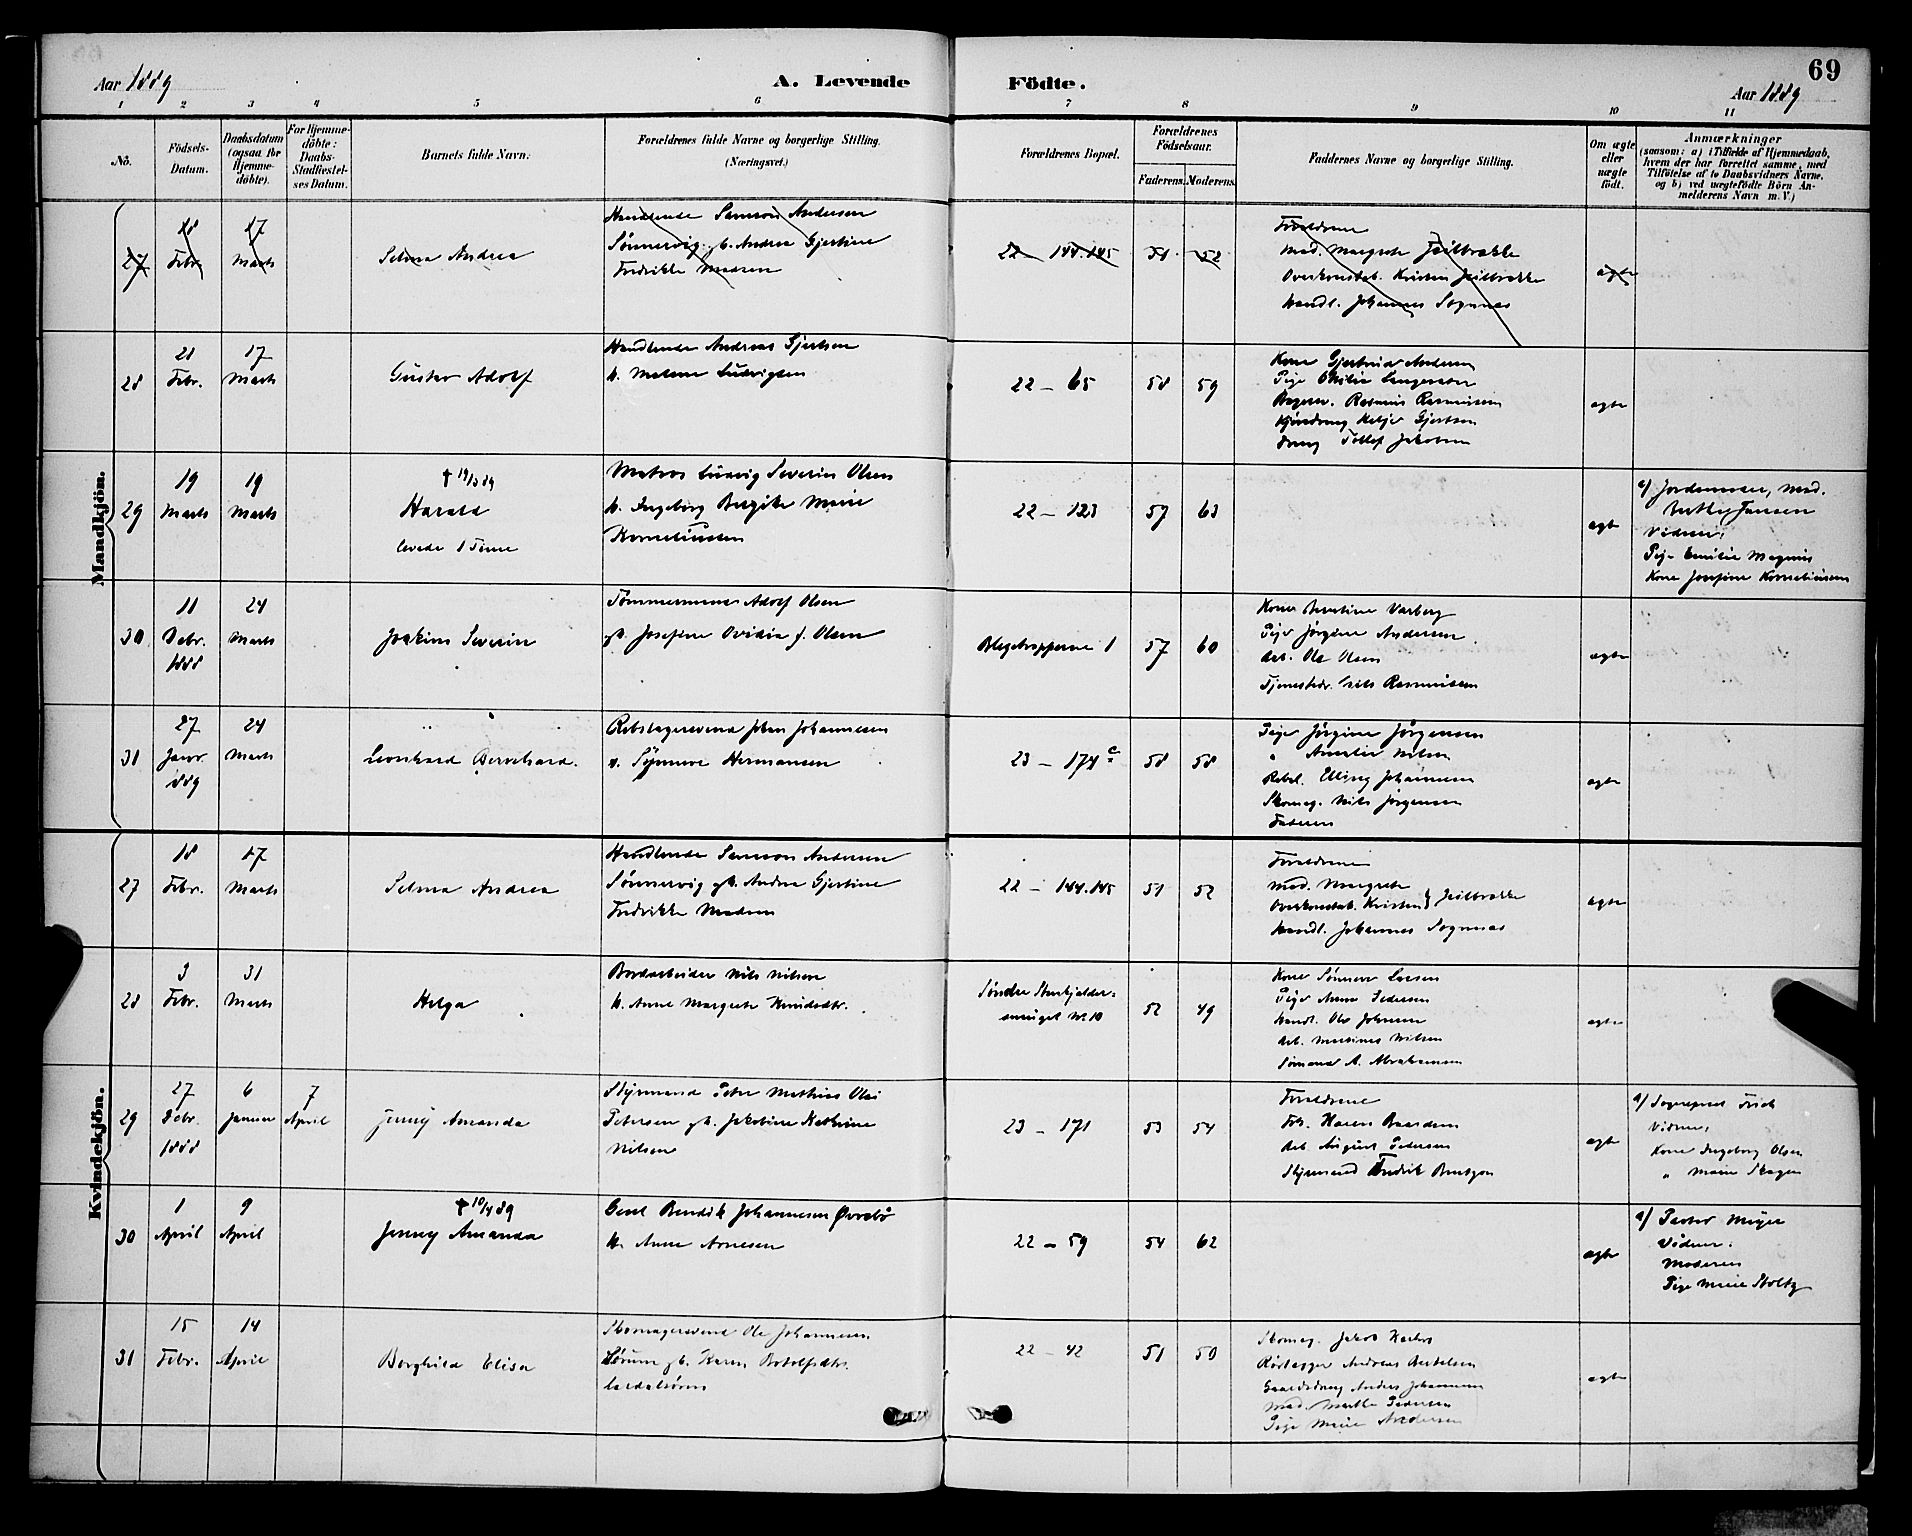 69
Aar 1889
A. Levende
Födte.
Aar 1889
1 2 3 4 5 6 7 8 9 10 11
No.
Födsels-
Datum.
Daabsdatum
(ogsaa for
Hjemme-
döbte).
For Hjemme-
döbte:
Daabs-
Stadfæstel-
ses Datum.
Barnets fulde Navn.
Forældrenes fulde Navne og borgerlige Stilling.
(Næringsvei.)
Forældrenes Bopæl.
Forældrenes
Födselsaar.
Faderens. Moderens.
Faddernes Navne og borgerlige Stilling.
Om ægte
eller
uægte
födt.
Anmærkninger
(saasom: a) i Tilfælde af Hjemmedaab,
hvem der har forrettet samme, med
Tilföielse af to Daabsvidners Navne,
og b) ved uægtefödte Börn An-
melderens Navn m. V.)
Mandkjön.
27
18
Febr.
17
Marts
Selma Andrea
Handlende Samson Andersen
Sønnervig gb. Andrea Gjertine
Fredrikke Madsen
22 - 144.145
51
52
Forældrene
Mad. Margrete
Overkonstab. Kristen
Handl. Johannes Sognnes
ægte
28
21
Febr.
17
Marts
Gustav Adolf
Handlende Andreas Gjertsen
h. Malene Ludvigsen
22 - 65
58
59
Kone Gjertrud Andersen
Pige
Rasmus Rasmussen
Gjertsen
Dreng Tollef Jakobsen
ægte
29
19
Marts
19
Marts
† 19/3 89
Harald
levede 1 Time
Matros Ludvig Severin Olsen
h. Ingeborg Birgitte Marie
Korneliussen
22 - 123
57
63
ægte
a) Jordemoder, Mad.
Jansen
Vidner:
Pige Emilie Magnus
Kone Josefine Korneliussen
30
11
Decbr.
1888
24
Marts
Joakim Severin
Tømmermand Adolf Olsen
gb. Josefine Ovidia f. Olsen
Blegetrapperne 1
57
60
Kone Martine Varberg
Pige Jørgine Andersen
Arb. Ole Olsen
Tjenestedr. Nils Rasmussen
ægte
31
27
Janr.
1889
24
Marts
Leonhard Bernhard.
Rebslagersvend Johan Johannesen
h. Synneve Hermansen
23 - 174 c
58
58
Pige Jørgine Jørgensen
" Amalie Nilsen
Rebsl. Elling Johannesen
Skomag. Nils Jørgensen
Faderen
ægte
Kvindekjön.
27
18
Febr.
17
Marts
Selma Andrea
Handlende Samson Andersen
Sønnervig gb. Andrea Gjertine
Fredrikke Madsen
22 - 144.145
51
52
Forældrene
Mad. Margrete
Overkonstab. Kristen
Handl. Johannes Sognnes
ægte
28
3
Febr.
31
Marts
Helga
Bordarbeider Nils Nilsen
h. Anne Margrete Knudsdtr.
Søndre
smuget No 10
52
49
Kone Sønneve Larsen
Pige Anna Pedersen
Handl. Ole Johnsen
Arb. Martinus Nilsen
Sømand A. Abrahamsen
ægte
29
27
Decbr.
1888
6
Januar
7
April
Jenny Amanda
Styrmand Peter Mathias Olai
Petersen gb. Jakobine Kathrine
Nilsen
23 - 171
53
54
Forældrene
Frk. Karen Baardsen
Arb August Pedersen
Styrmand Fredrik Bentzon
ægte
a) Sogneprest Frich
Vidner:
Kone Ingeborg Olsen
" Marie Skagen
30
1
April
9
April
† 10/4 89
Jenny Amanda
Bendik Johannesen Øvrebø
h. Anne Arnesen
22 - 59
54
62
ægte
a) Pastor Meyer
Vidner:
Moderen
Pige Marie Stoltz
31
15
Febr.
14
April
Borghild Elisa
Skomagersvend Ole Johannesen
Sørum gb. Karen Botolfsdtr.
22 - 42
51
50
Skomag. Jakob
Andreas Bertelsen
Gaardsdreng Anders Johannesen
Mad. Marthe Pedersen
Pige Marie Andersen
ægte